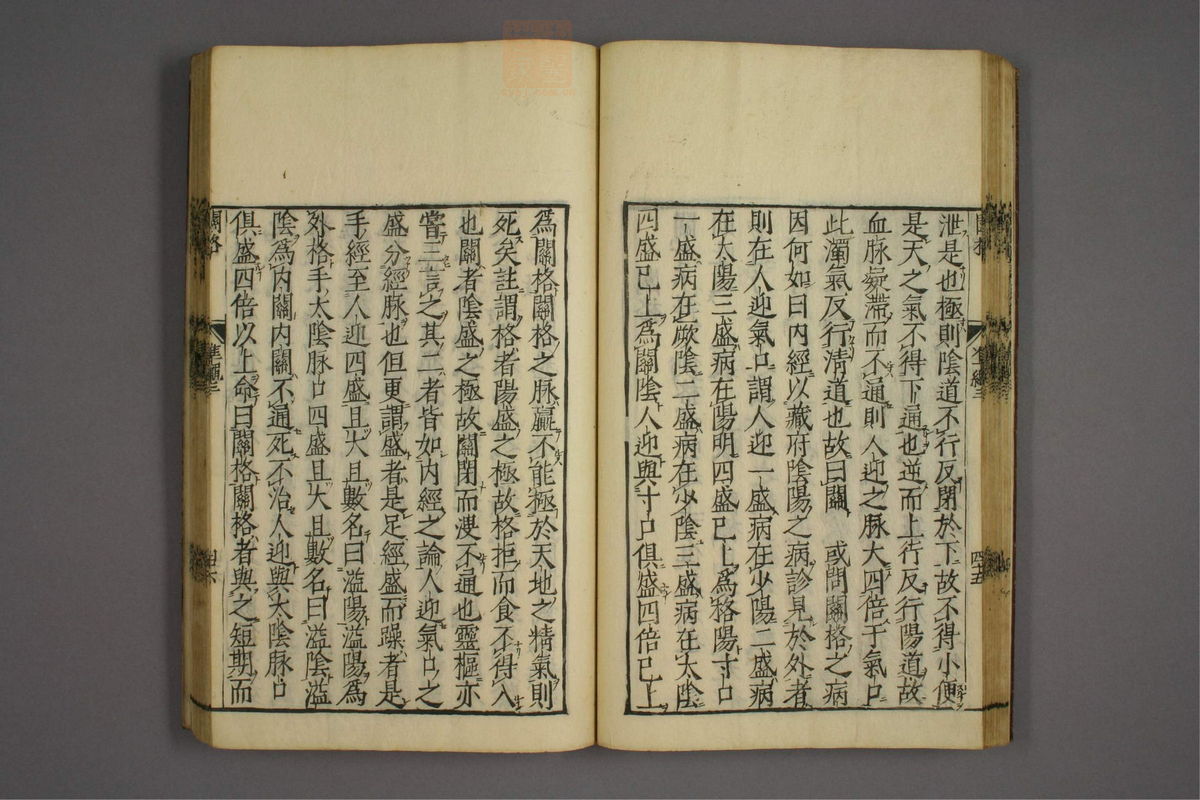 泄是也極則陰道不行反閉於下故不得小便
是天之氣不得下通也逆而上行反行陽道故
血脉凝滯而不通則人迎之脉大四倍于氣口
此濁氣反行清道也故曰關 或問關格之病
因何如曰内經以藏府陰陽之病診見於外者
則在人迎氣口謂人迎一盛病在少陽二盛病
在太陽三盛病在陽明四盛已上爲格陽寸口
一盛病在厥陰二盛病在少陰三盛病在太陰
四盛已上爲關陰人迎與寸口俱盛四倍已上
爲關格關格之脉羸不能極於天地之精氣則
死矣註謂格者陽盛之極故格拒而食不得入
也關者陰盛之極故關閉而溲不通也靈樞亦
嘗三言之其二者皆如内經之論人迎氣口之
盛分經脉也但更謂盛者是足經盛而躁者是
手經至人迎四盛且大且數名曰溢陽溢陽爲
外格手太陰脉口四盛且大且數名曰溢陰溢
陰爲内關内關不通死不治人迎與太陰脉口
俱盛四倍以上命曰關格關格者與之短期而
關格
四六